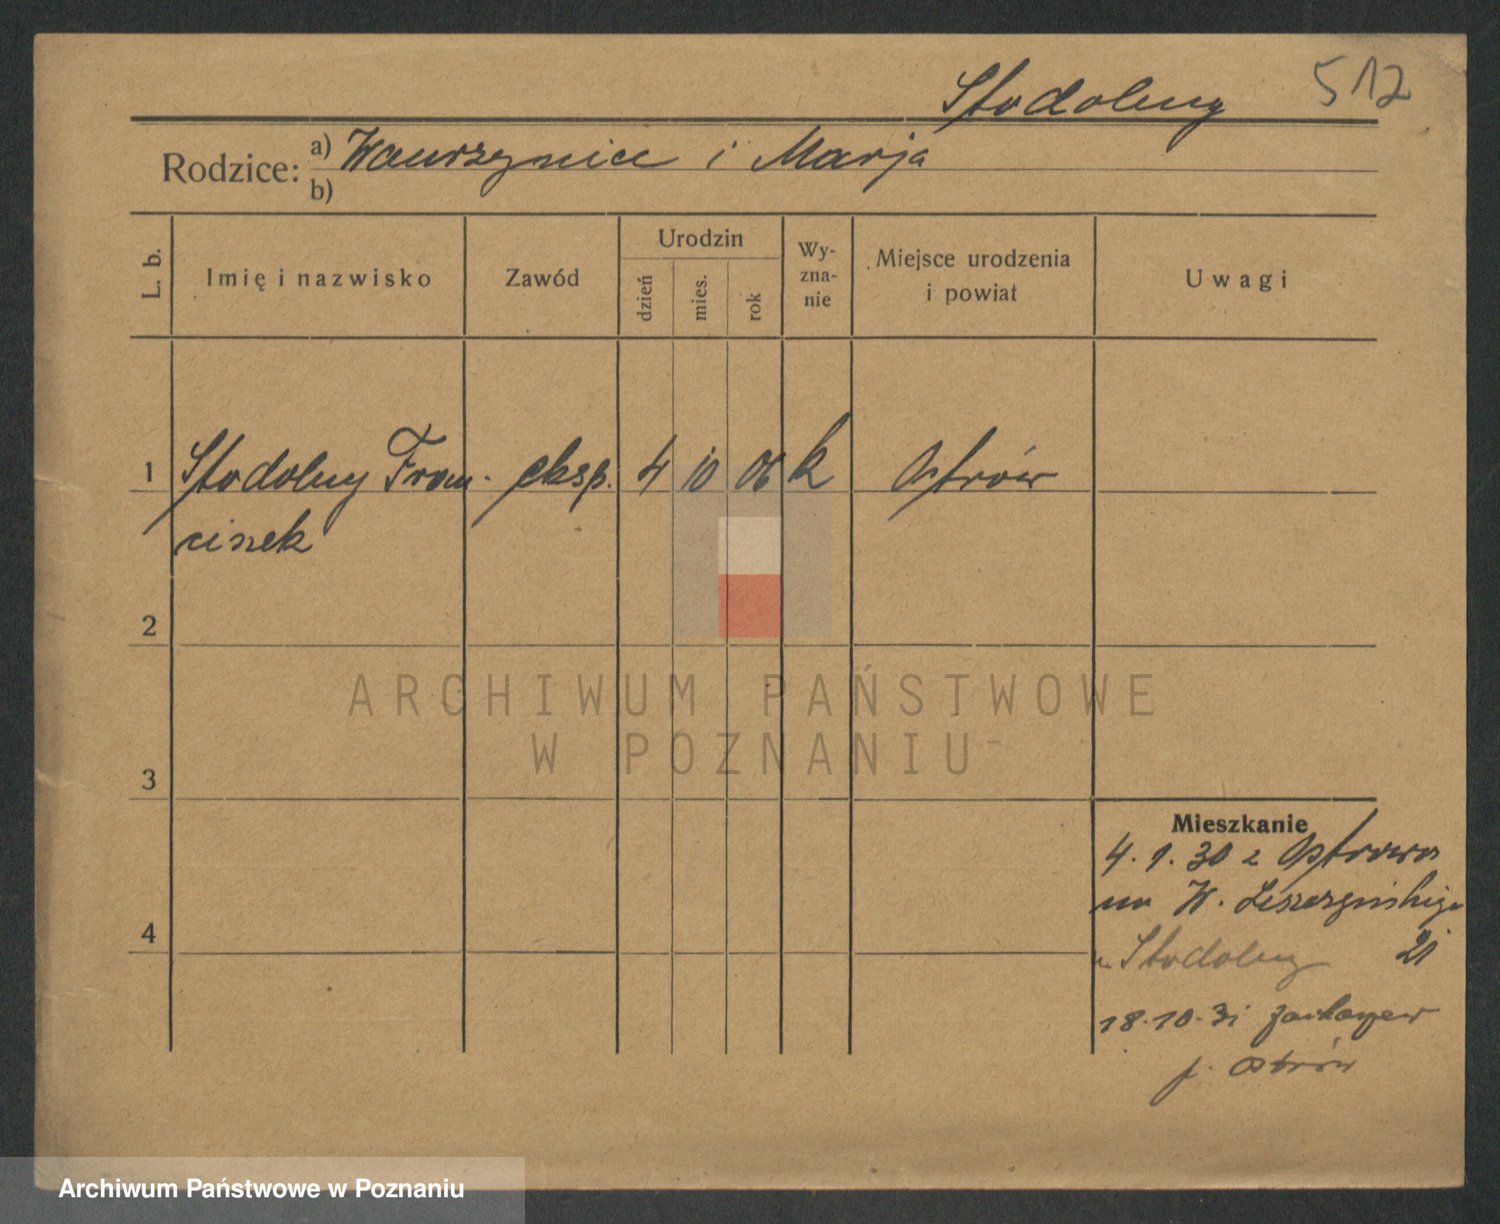 512
Stodolny
Rodzice: a) Wawrzyniec i Marja
b)
L. b.
Imię i nazwisko
Zawód
Urodzin
dzień
mies.
rok
Wy-
zna-
nie
Miejsce urodzenia
i powiat
Uwagi
1 Stodolny Fran- eksp. 4 10 06 k Ostrów
ciszek
2
3
4
ARCHIWUM PAŃSTWOWE
W POZNANIU
Mieszkanie
4. 1. 30 z Ostrowa
na W. Leszczyńskiego
Stodolny 21
18.10.31
p. Ostrów
Archiwum Państwowe w Poznaniu